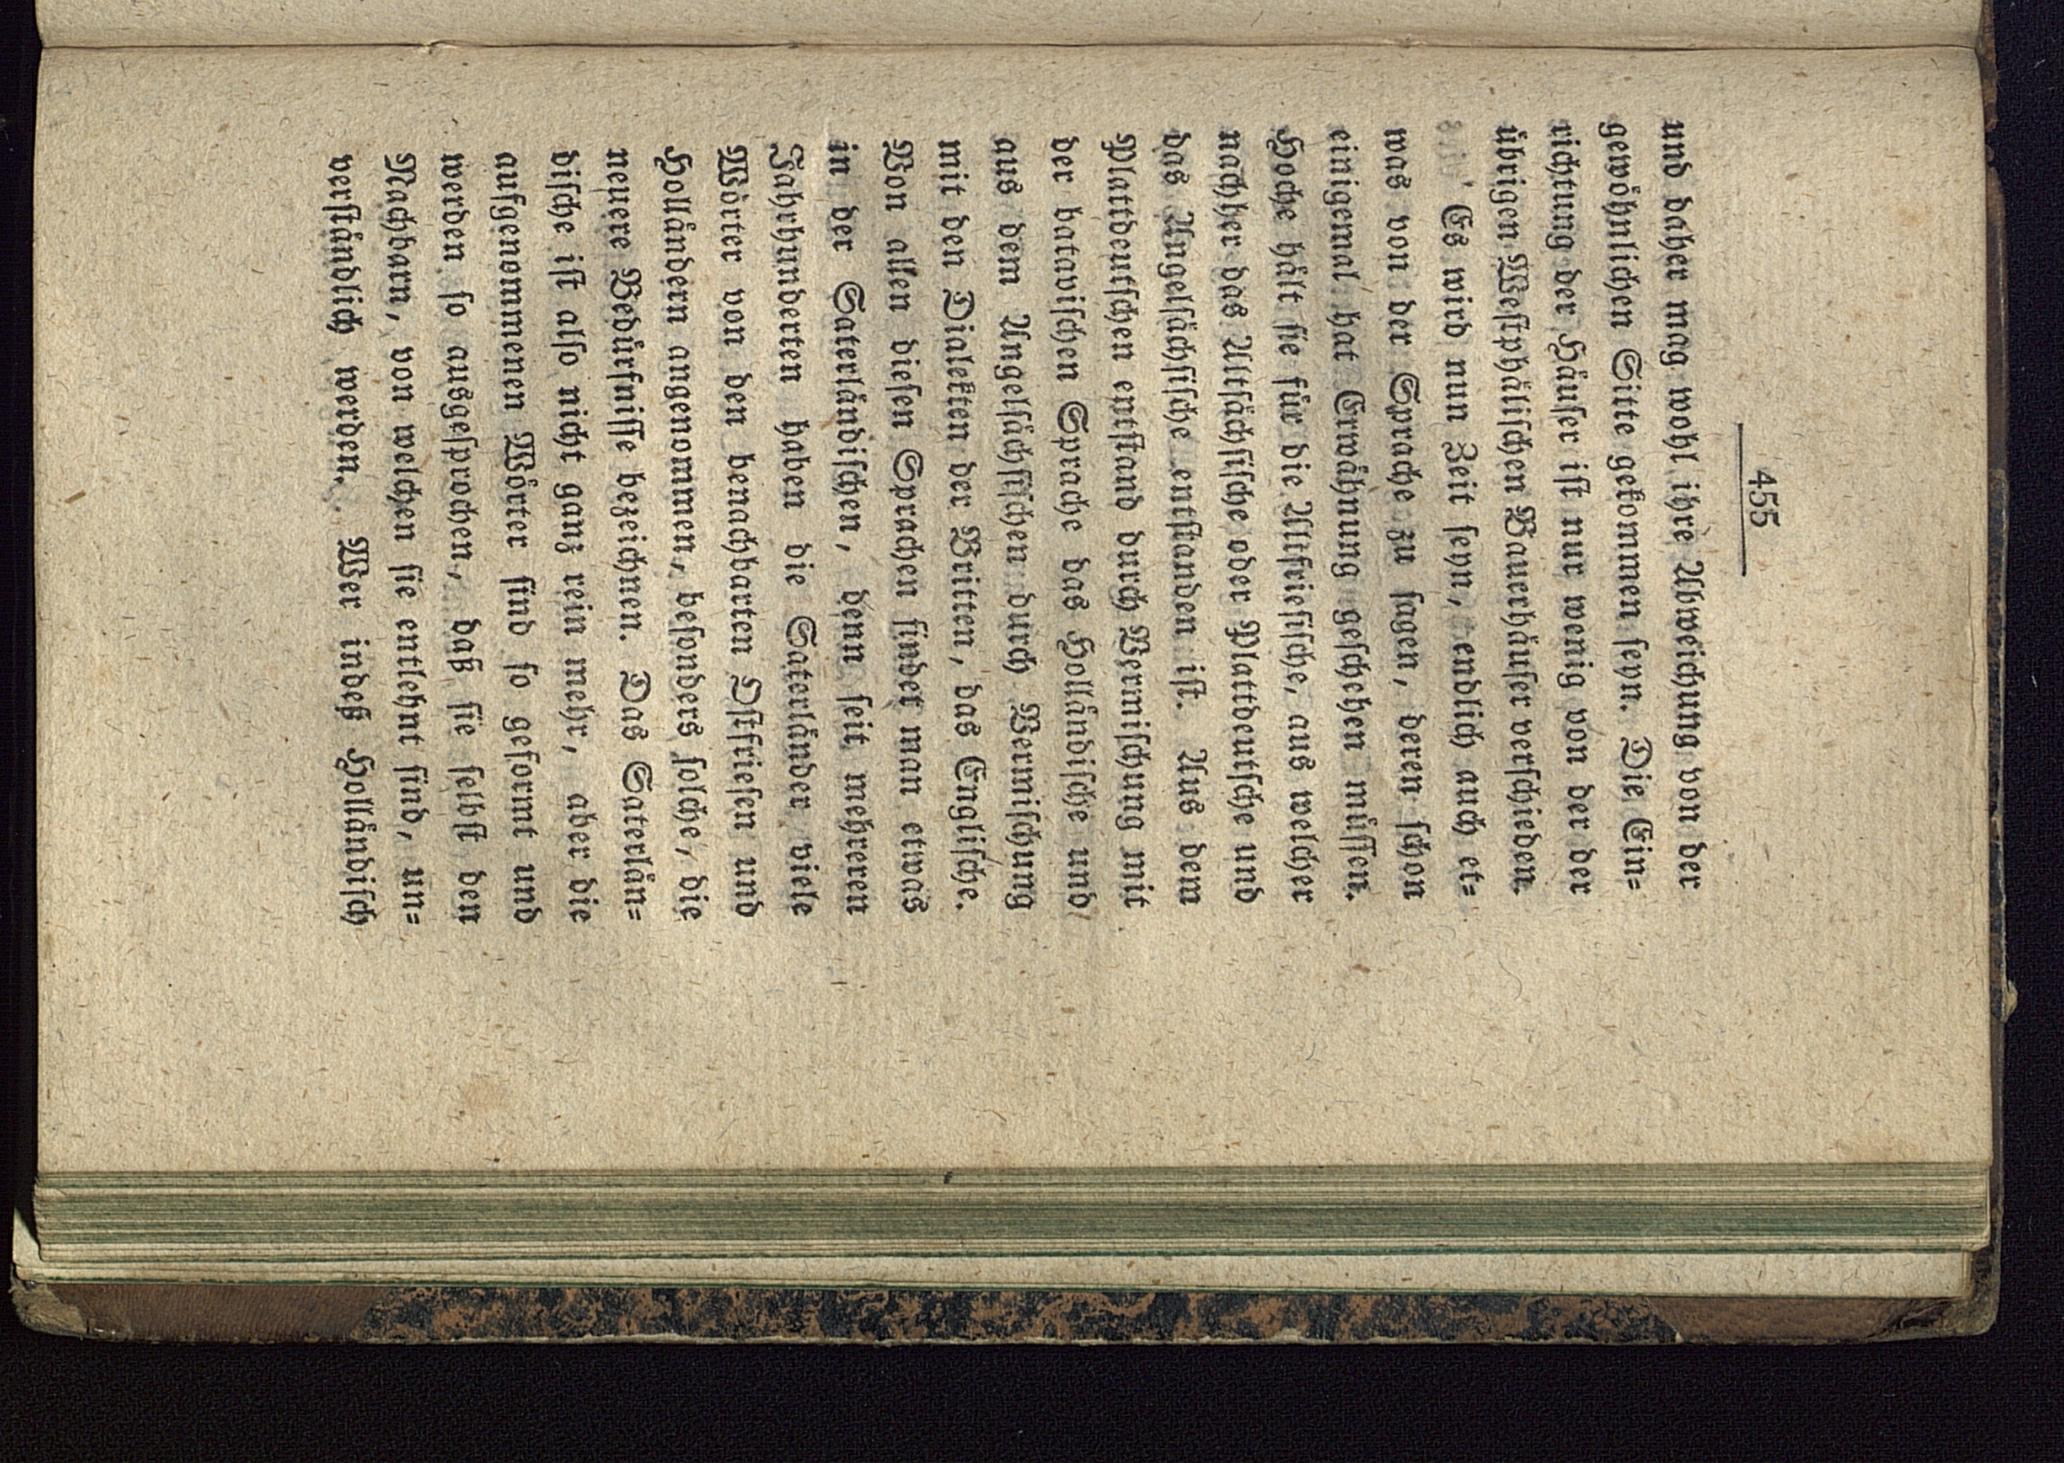 455
und daher mag wohl ihre Abweichung von der
gewöhnlichen Sitte gekommen seyn. Die Ein-
richtung der Häuser ist nur wenig von der der
übrigen Westphälischen Bauerhäuser verschieden.
Es wird nun Zeit seyn, endlich auch et-
was von der Sprache zu sagen, deren schon
einigemal hat Erwähnung geschehen müssen.
Hoche hält sie für die Altfriesische, aus welcher
nachher das Altsächsische oder Plattdeutsche und
das Angelsächsische entstanden ist. Aus dem
Plattdeutschen entstand durch Vermischung mit
der batavischen Sprache das Holländische und
aus dem Angelsächsischen durch Vermischung
mit den Dialekten der Britten, das Englische.
Von allen diesen Sprachen findet man etwas
in der Saterländischen, denn seit mehreren
Jahrhunderten haben die Saterländer viele
Wörter von den benachbarten Ostfriesen und
Holländern angenommen, besonders solche, die
neuere Bedürfnisse bezeichnen. Das Saterlän-
dische ist also nicht ganz rein mehr, aber die
aufgenommenen Wörter sind so geformt und
werden so ausgesprochen, daß sie selbst den
Nachbarn, von welchen sie entlehnt sind, un-
verständlich werden. Wer indeß Holländisch